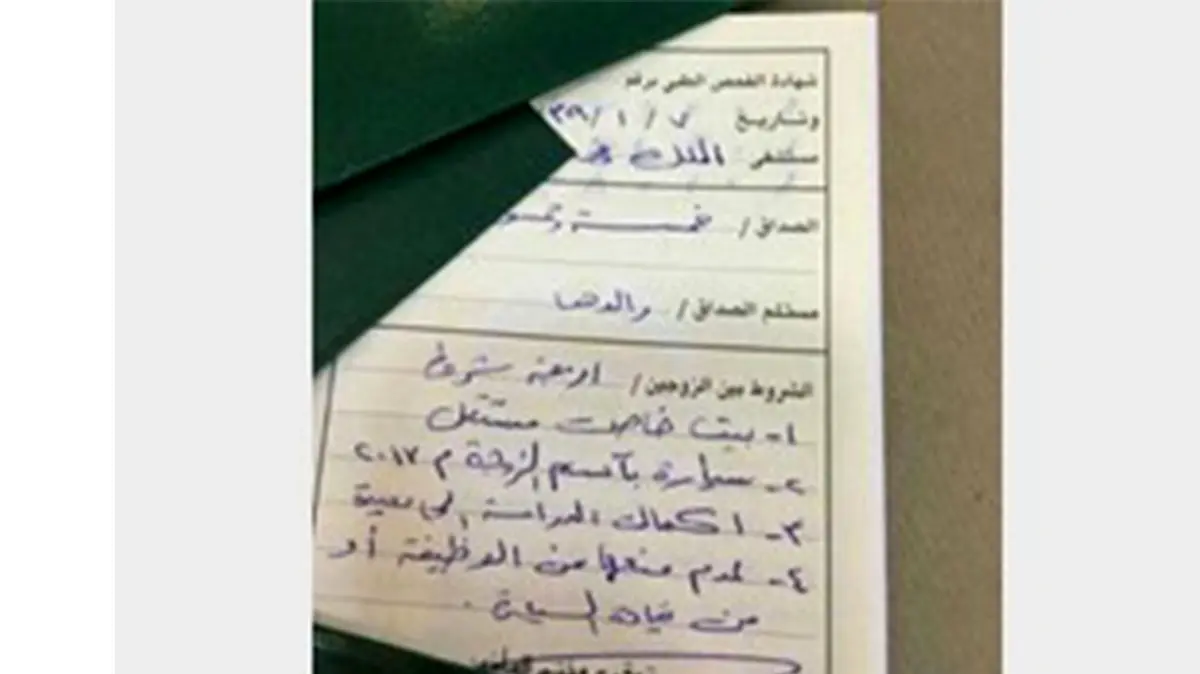 شهادة الفحص الطبي برقم
وتاريخ ٧ / ١ / ٣٩
مستشفى الملك
الصداق / خمسة
مستلم الصداق / والدها
الشروط بين الزوجين / اربعة شروط
١- بيت خاص مستقل
٢- سيارة بآسم الزوجة م ٢٠١٧
٣- اكمال الدراسة الجامعية
٤- عدم منعها من الوظيفة أو
من قيادة السيارة .